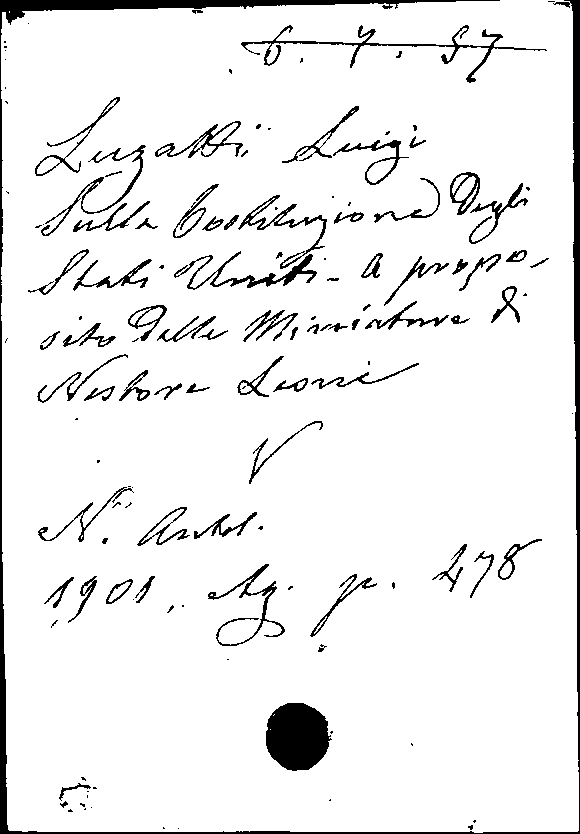 6. 7. 57
Luzatti Luigi
Sulla Costituzione Degli
Stati Uniti - A propo-
sito Delle Miniature di
Nestore Leoni
V
N. Antol.
1901, Ag. p. 478